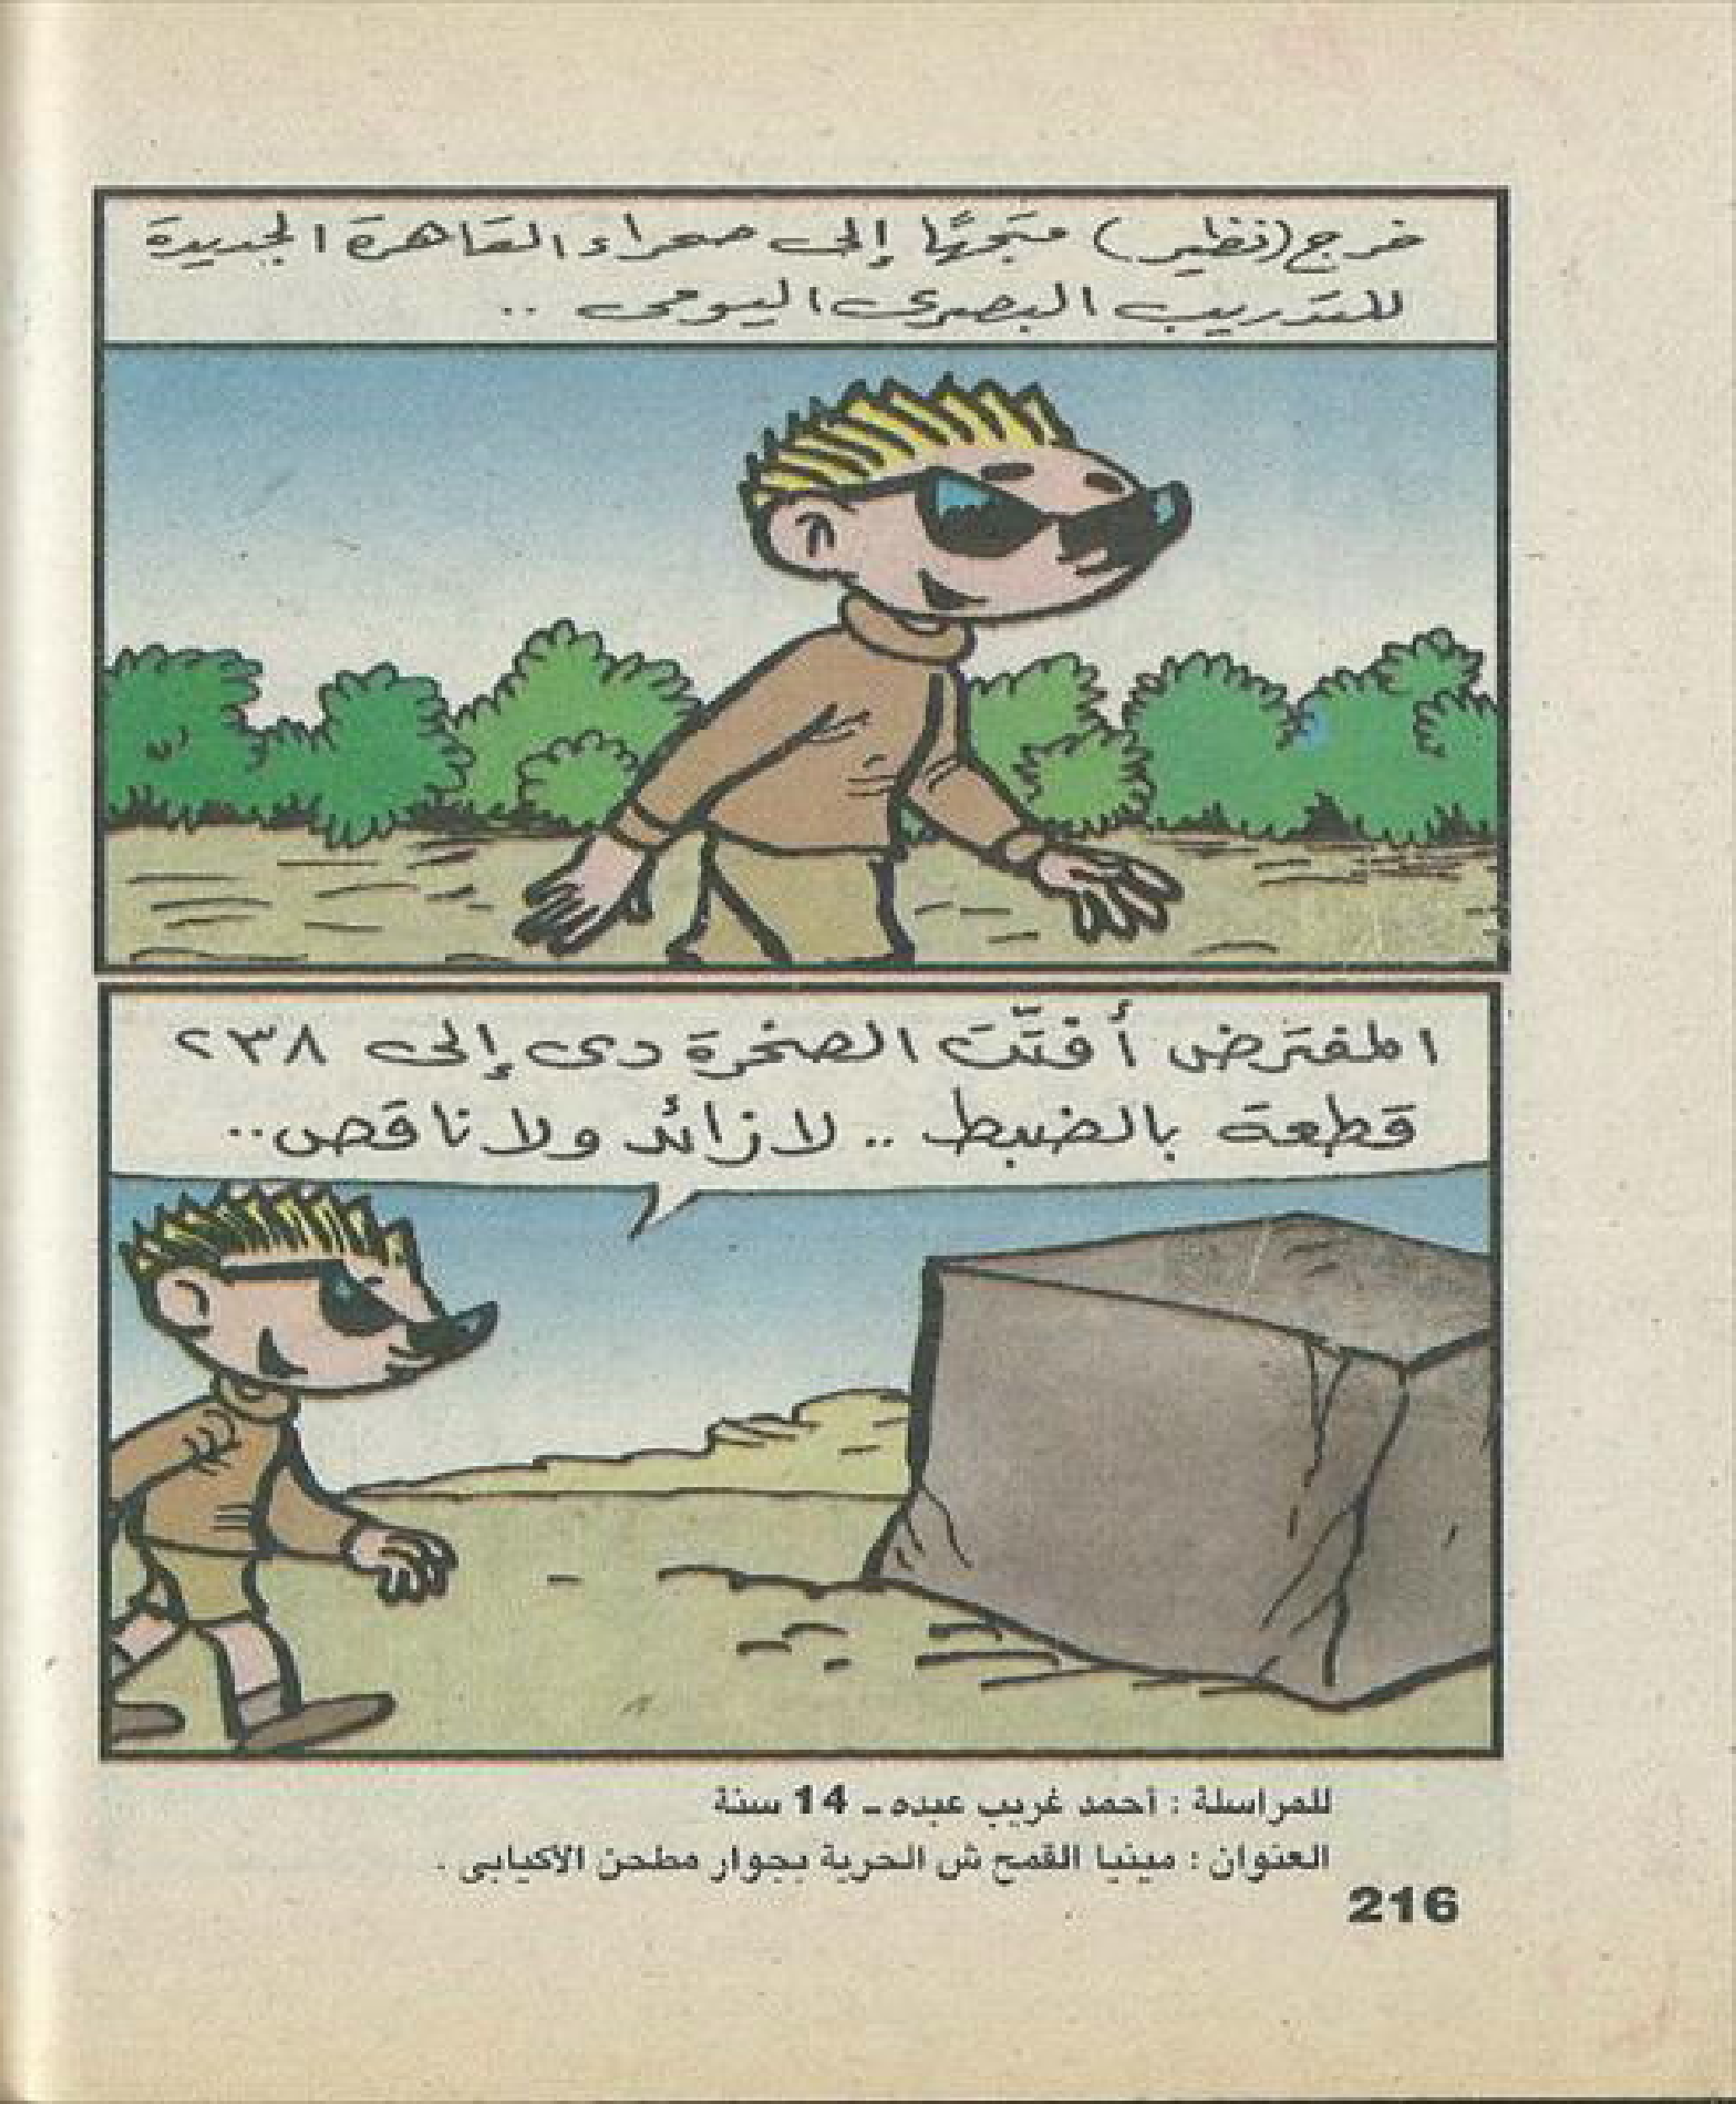 خرج (نظير) متجهًا إلى صحراء القاهرة الجديدة
للتدريب البصرى اليومى ..
المفترض أفتّت الصخرة دى إلى ٢٣٨
قطعة بالضبط .. لا زائد ولا ناقص..
للمراسلة : أحمد غريب عبده - 14 سنة
العنوان : مينيا القمح ش الحرية بجوار مطحن الأكيابى .
216